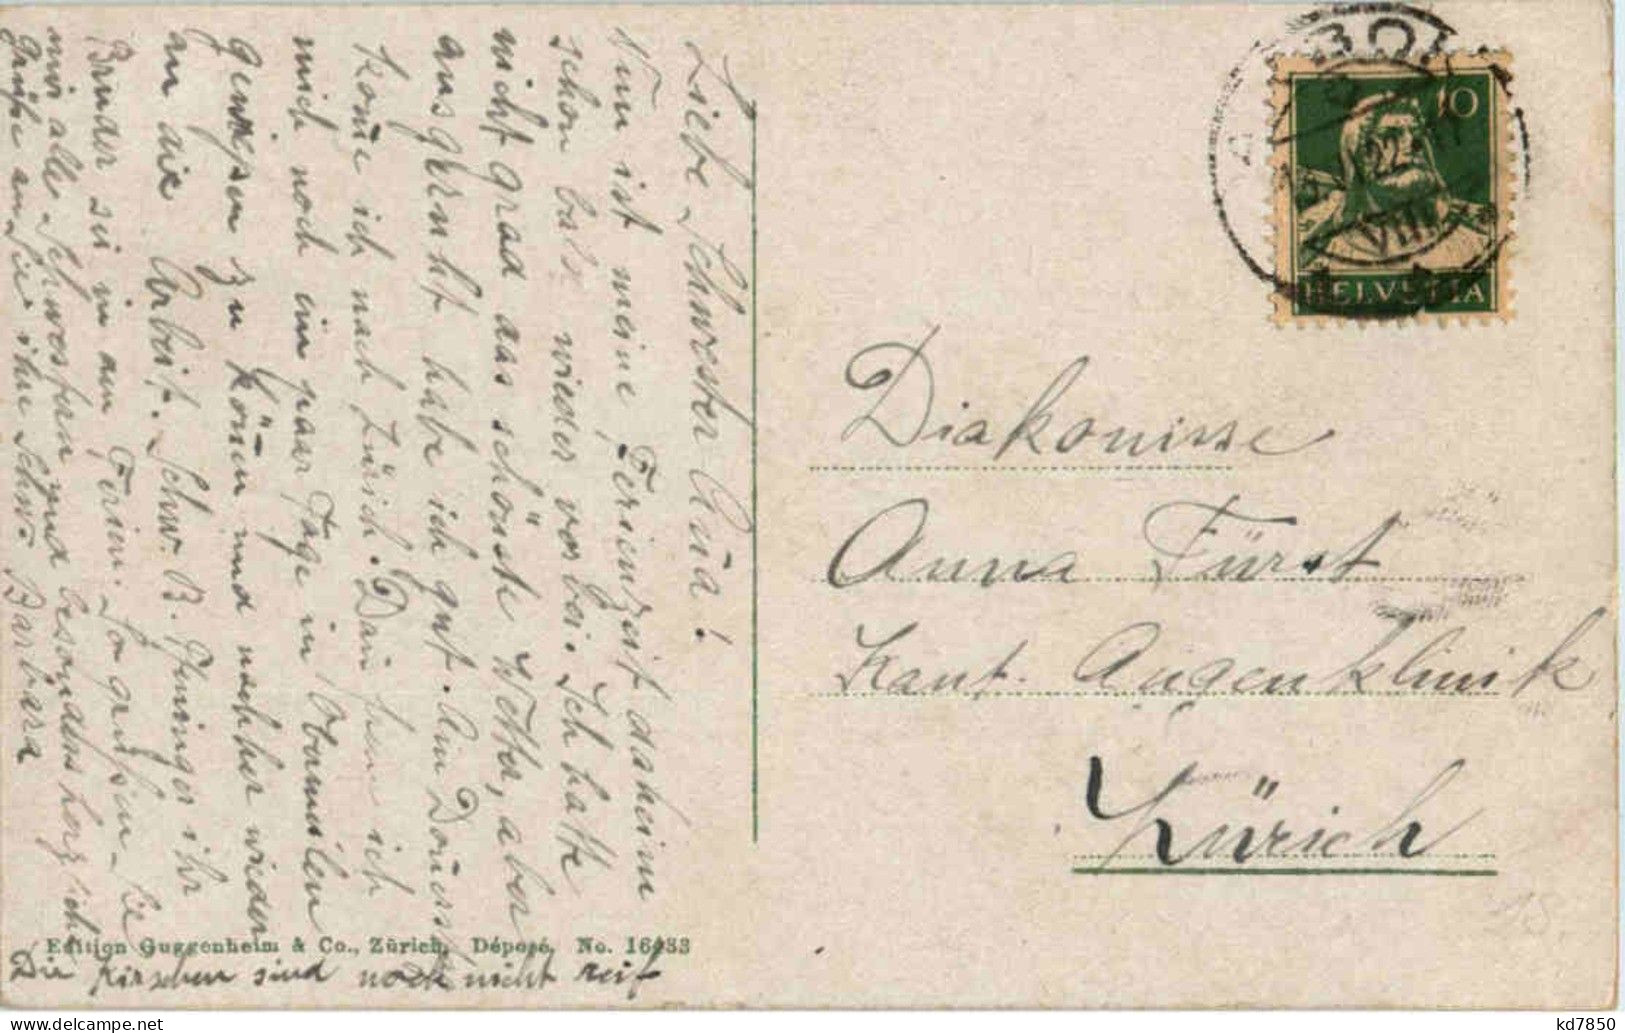 Liebe Schwester Anna!
Nun ist meine Ferienzeit daheim
schon bald wieder vorbei. Ich hatte
nicht grad das schönste Wetter, aber
ausgeruht habe ich gut. Am
kome ich nach Zürich. Dann ich
mich noch ein paar Tage in Obermeilen
geniessen zu könen und nachher wieder
an die Arbeit. Schw. B. ihr
Bruder sei in den Ferien. So grüssen Sie
mir alle Schwestern und besonders herzliche
Grüsse an Sie ihre Schw. Barbara
Die Kirschen sind noch nicht reif
Edition Guggenheim & Co., Zürich. Déposé. No. 16433
10
HELVETIA
22
VIII
Diakonisse
Anna Fürst
Kant. Augenklinik
Zürich
kd7850